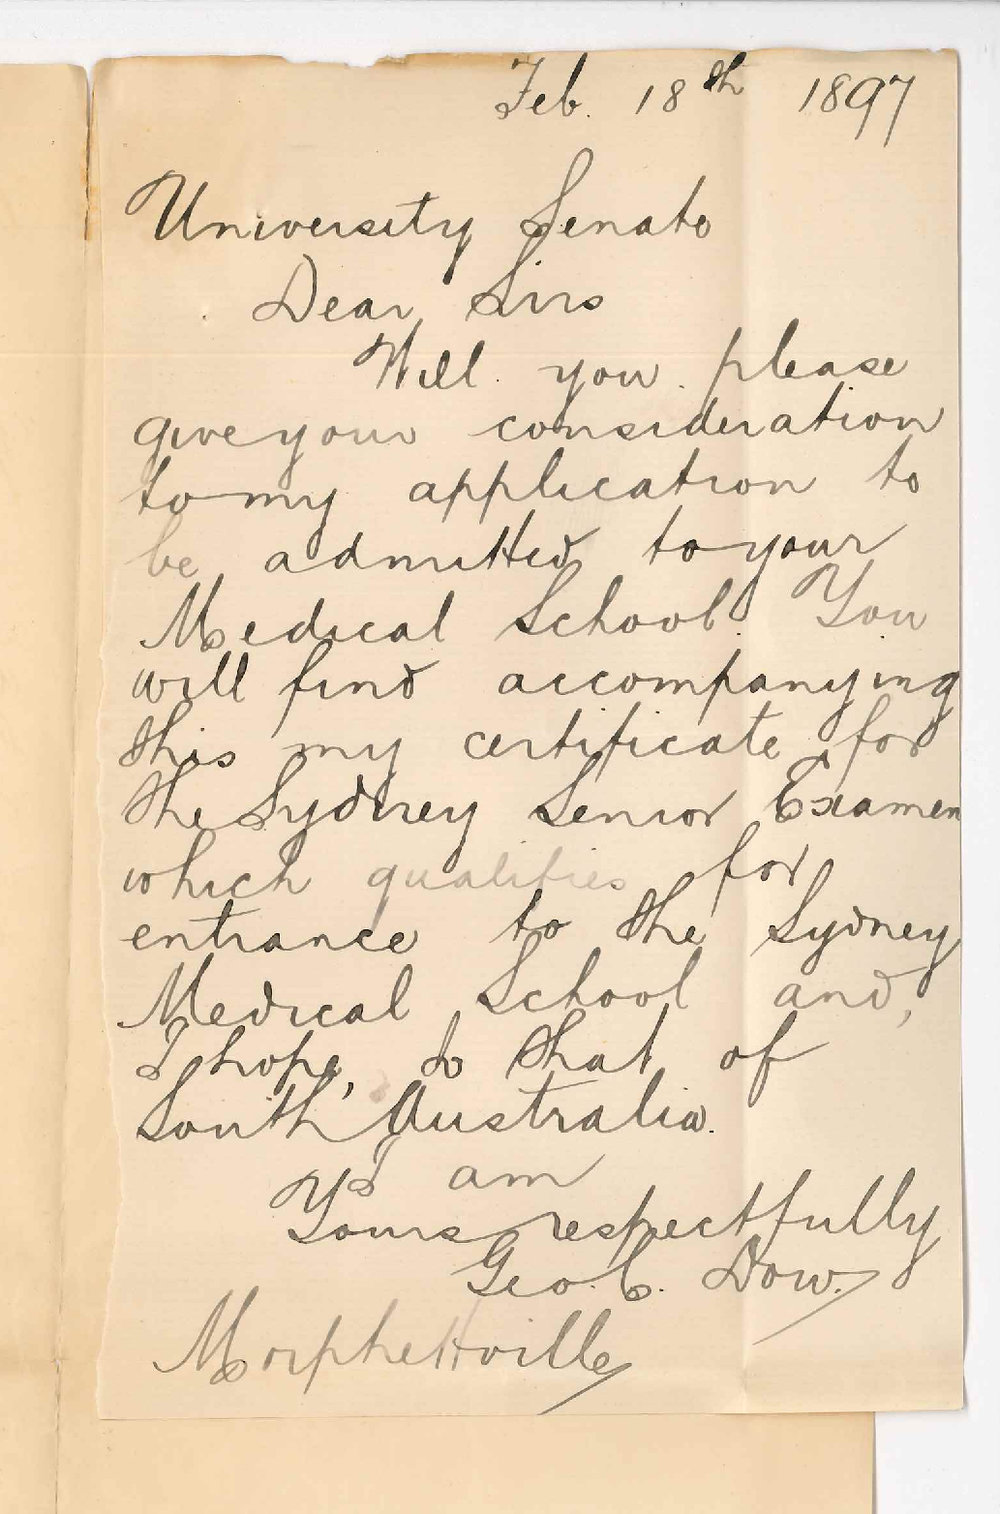 Feb. 18th 1897
University Senate
Dear Sirs
Will you please
give your consideration
to my application to
be admitted to your
Medical School. You
will find accompanying
this my certificate for
the Sydney Senior Examen
which qualifies for
entrance to the Sydney
Medical School and,
I hope, to that of
South Australia.
I am
Yours respectfully
Geo. C. Dow.
Morphettville